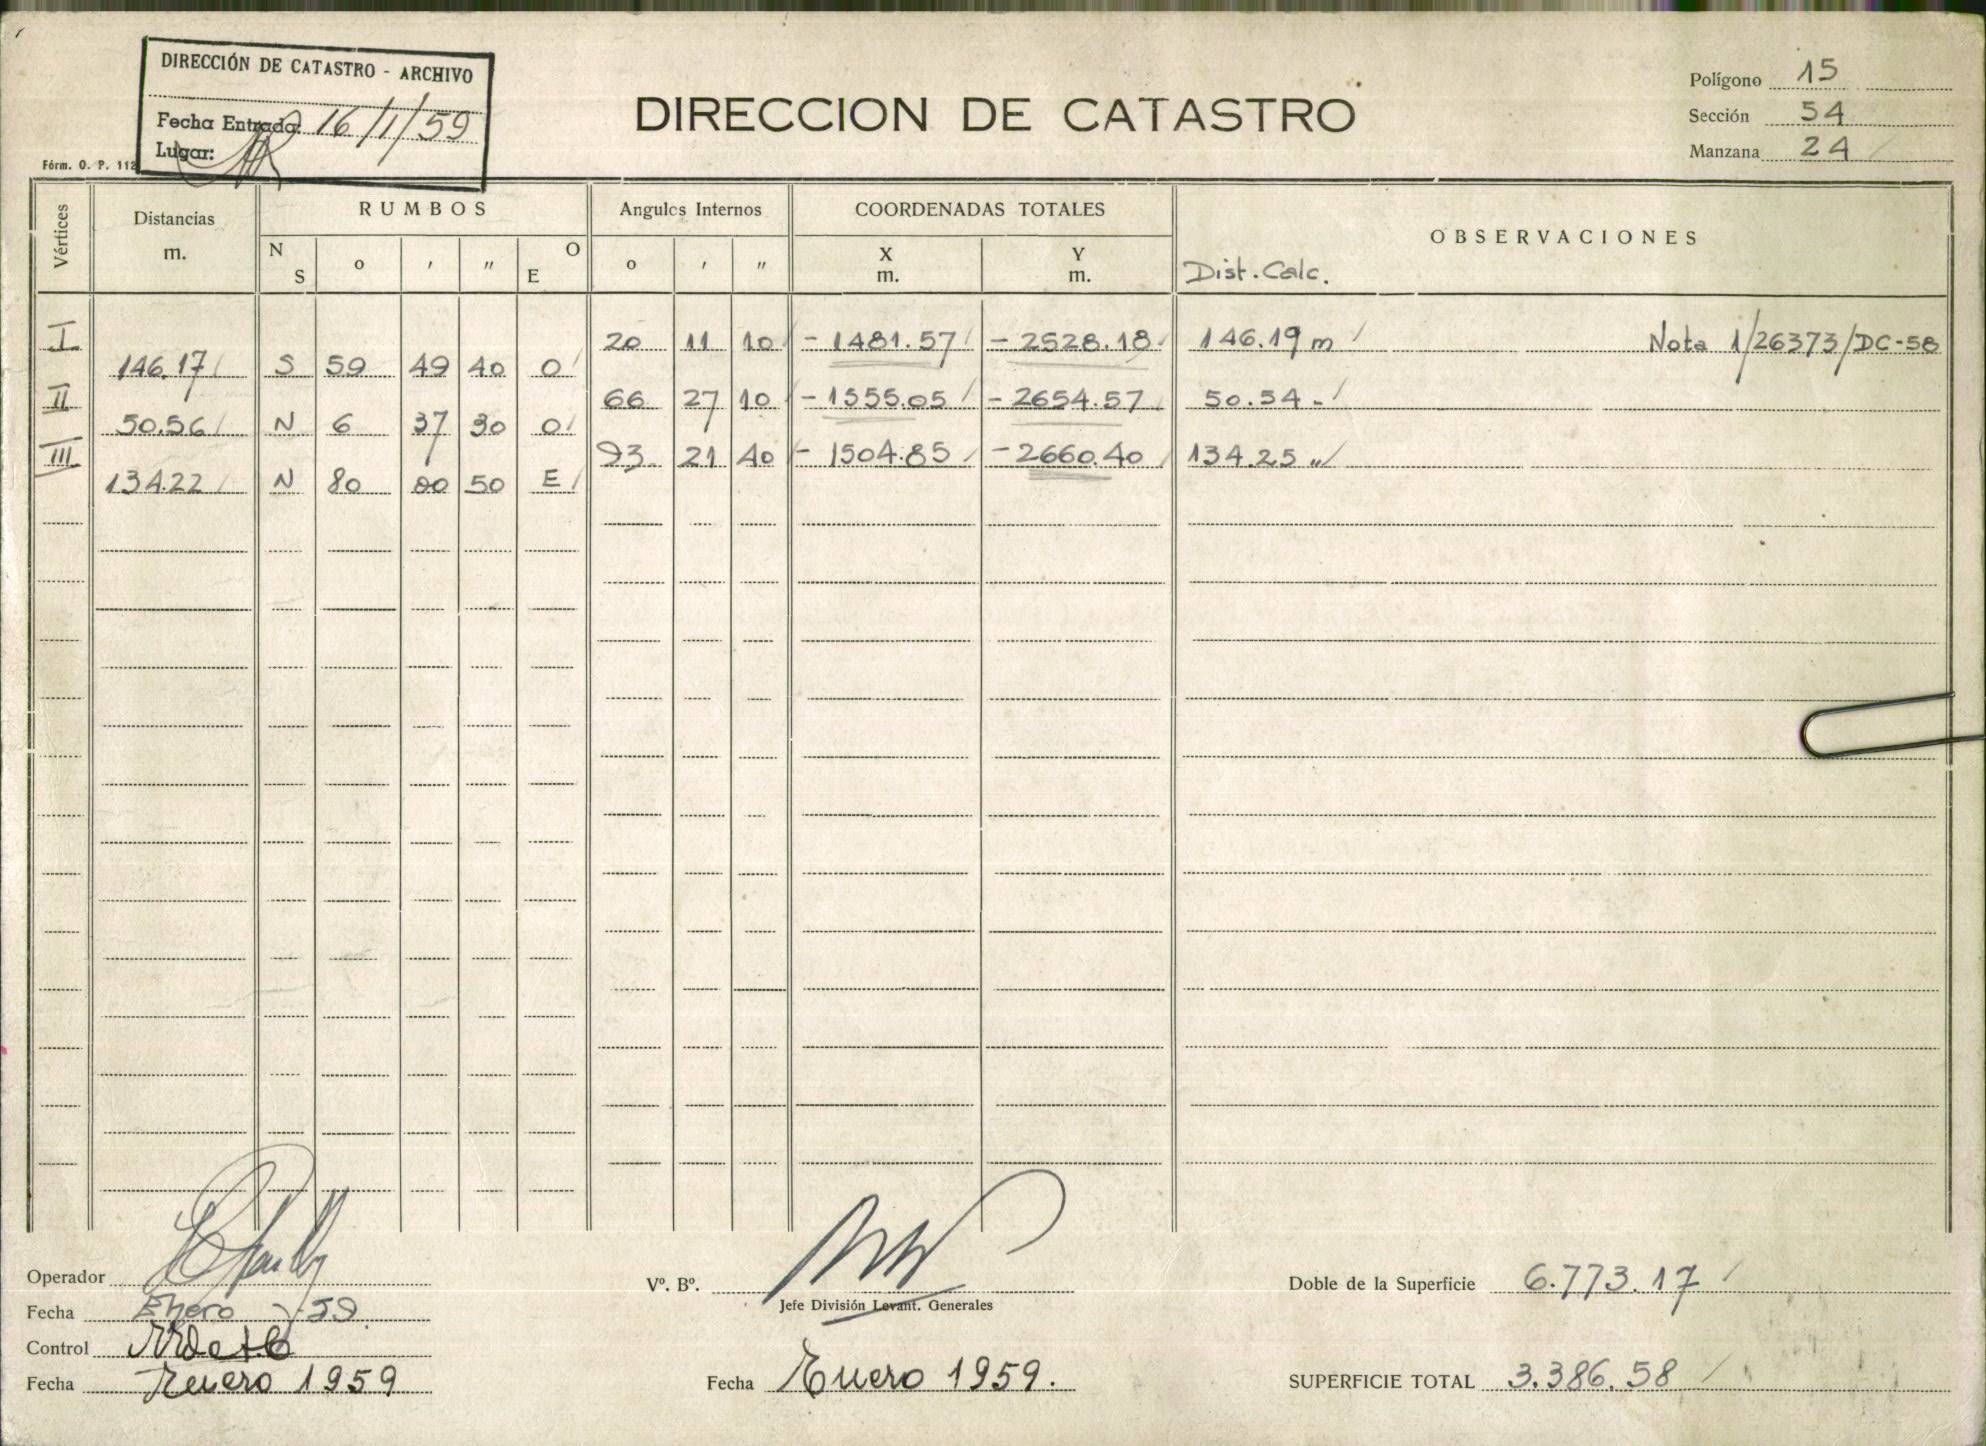 DIRECCIÓN DE CATASTRO - ARCHIVO
Fecha Entrada: 16/1/59
Lugar:
Fórm. O. P. 112
DIRECCION DE CATASTRO
Polígono 15
Sección 54
Manzana 24
Vértices Distancias m. RUMBOS Angulos Internos COORDENADAS TOTALES OBSERVACIONES
N S o ' " O E o ' " X m. Y m. Dist. Calc.
I 20 11 10 - 1481.57 - 2528.18 146.19 m Nota 1/26373/DC-58
146.17 S 59 49 40 O
II 66 27 10 - 1555.05 - 2654.57 50.54 "
50.56 N 6 37 30 O
III 93 21 40 - 1504.85 - 2660.40 134.25 "
134.22 N 80 00 50 E
Operador
Fecha Enero - 59.
Control
Fecha Enero 1959
Vº. Bº.
Jefe División Levant. Generales
Fecha Enero 1959.
Doble de la Superficie 6.773.17
SUPERFICIE TOTAL 3.386.58